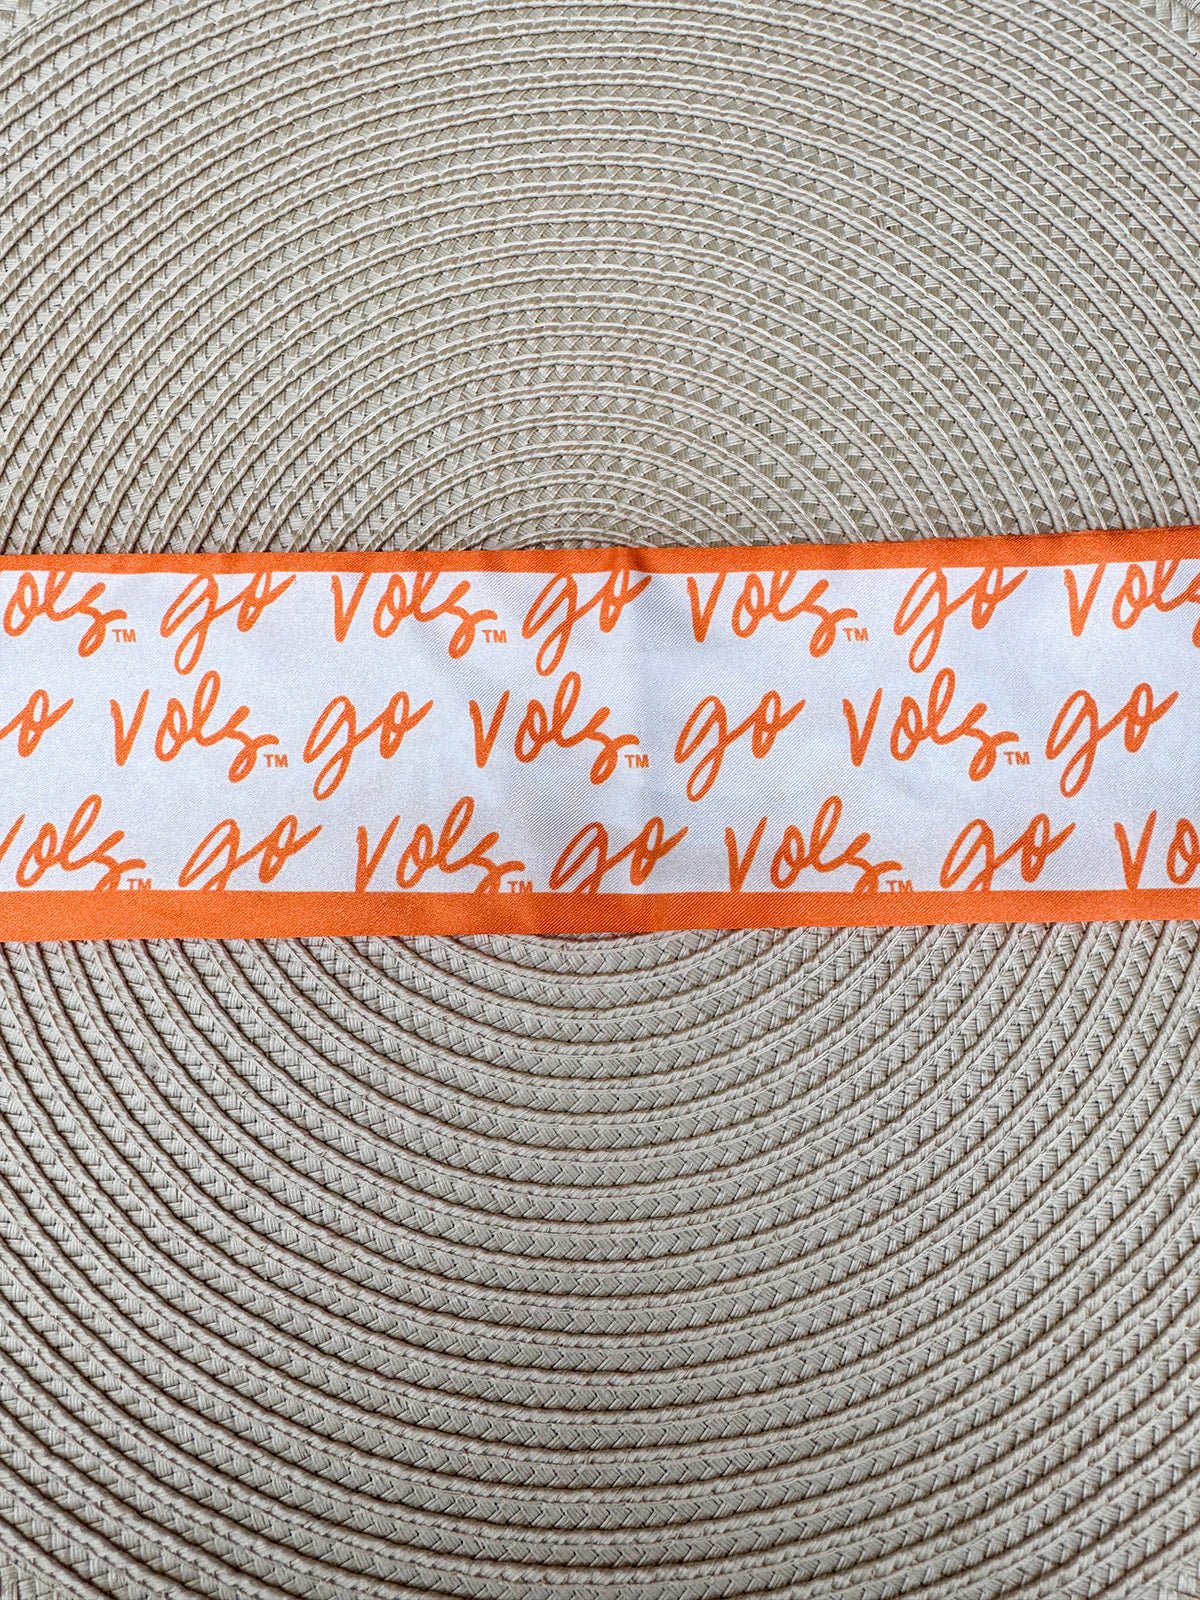 Vols™ go Vols™ go Vols™ go Vols
go Vols™ go Vols™ go Vols™ go
Vols™ go Vols™ go Vols™ go Vo